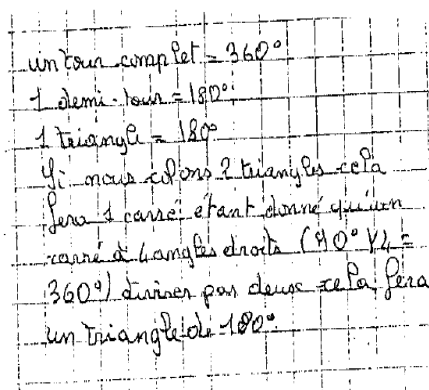 un tour complet = 360°
1 demi-tour = 180°
1 triangle = 180°
Si nous colons 2 triangles cela
fera 1 carré étant donné qu'un
carré à 4 angles droits (90° X 4 =
360°) diviser par deux cela fera
un triangle de 180°